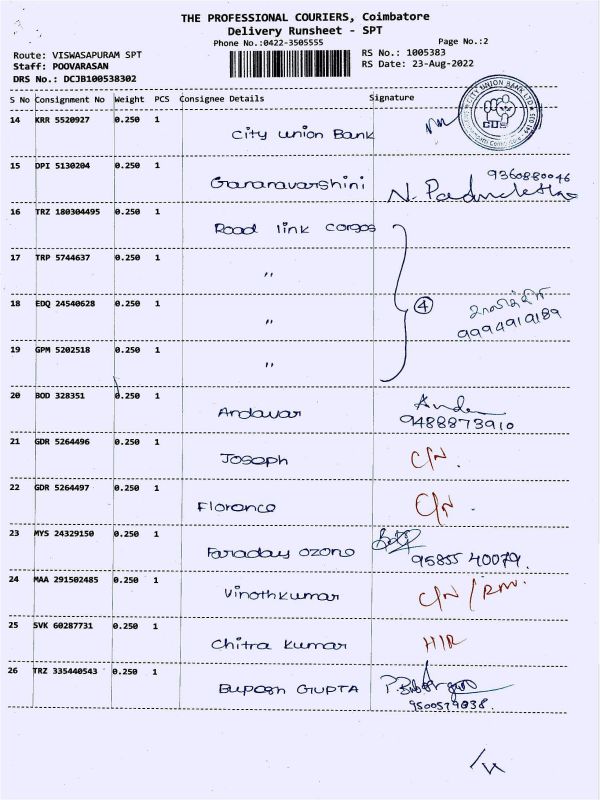 THE PROFESSIONAL COURIERS, Coimbatore
Delivery Runsheet - SPT
Phone No.:0422-3505555 Page No.:2
Route: VISWASAPURAM SPT RS No.: 1005383
Staff: POOVARASAN RS Date: 23-Aug-2022
DRS No.: DCJB100538302
S No Consignment No Weight PCS Consignee Details Signature
14 KRR 5520927 0.250 1 City Union Bank
15 DPI 5130204 0.250 1 Gananavarshini 9360880046
16 TRZ 180304495 0.250 1 Road link corgos
17 TRP 5744637 0.250 1 "
18 EDQ 24540628 0.250 1 " 4 9994919189
19 GPM 5202518 0.250 1 "
20 BOD 328351 0.250 1 Andavar 9488873910
21 GDR 5264496 0.250 1 Joseph C/N.
22 GDR 5264497 0.250 1 Florence C/N.
23 MYS 24329150 0.250 1 Faraday ozone 95855 40079.
24 MAA 291502485 0.250 1 Vinothkumar C/N / RMV.
25 SVK 60287731 0.250 1 Chitra kumar HIR
26 TRZ 335440543 0.250 1 Bupesh GUPTA